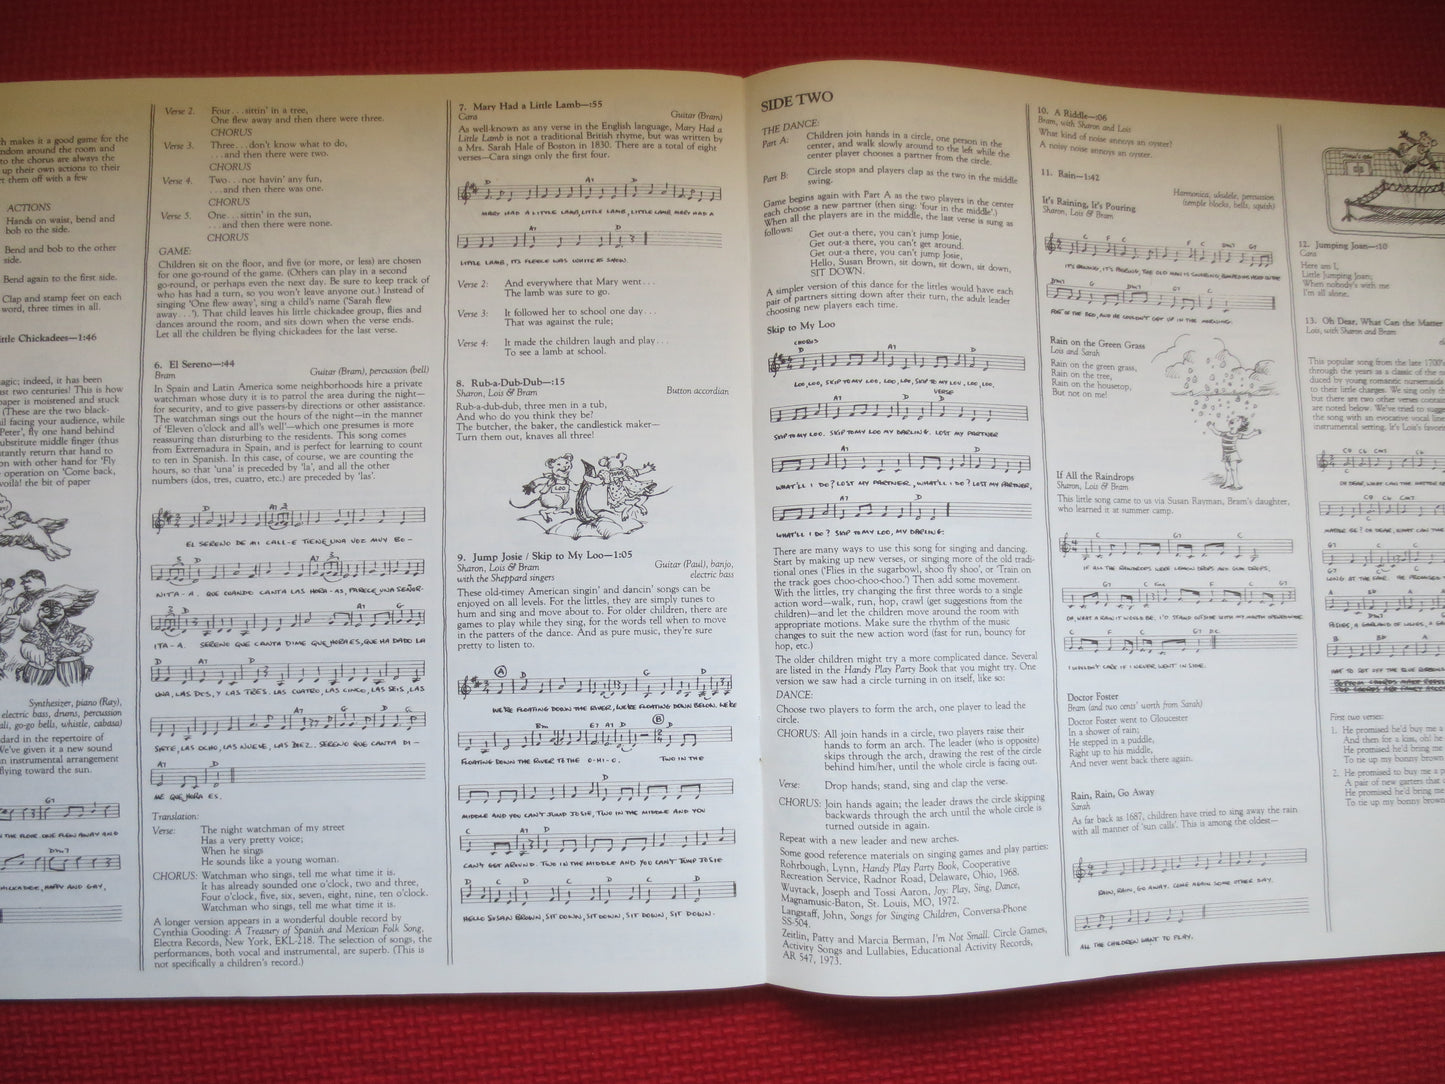 h makes it a good game for the
ndom around the room and
to the chorus are always the
up their own actions to their
t them off with a few
ACTIONS
Hands on waist, bend and
bob to the side.
Bend and bob to the other
side.
Bend again to the first side.
Clap and stamp feet on each
word, three times in all.
ittle Chickadees—1:46
agic; indeed, it has been
ast two centuries! This is how
paper is moistened and stuck
(These are the two black-
ail facing your audience, while
Peter', fly one hand behind
ubstitute middle finger (thus
tantly return that hand to
on with other hand for 'Fly
operation on 'Come back,
voila! the bit of paper
Synthesizer, piano (Ray),
electric bass, drums, percussion
ali, go-go bells, whistle, cabasa)
dard in the repertoire of
We've given it a new sound
n instrumental arrangement
flying toward the sun.
G7
N THE FLOOR ONE FLEW AWAY AND
Dm7
HICKADEE, HAPPY AND GAY,
Verse 2. Four . . . sittin' in a tree,
One flew away and then there were three.
CHORUS
Verse 3. Three . . . don't know what to do,
. . . and then there were two.
CHORUS
Verse 4. Two . . . not havin' any fun,
. . . and then there was one.
CHORUS
Verse 5. One . . . sittin' in the sun,
. . . and then there were none.
CHORUS
GAME:
Children sit on the floor, and five (or more, or less) are chosen
for one go-round of the game. (Others can play in a second
go-round, or perhaps even the next day. Be sure to keep track of
who has had a turn, so you won't leave anyone out.) Instead of
singing 'One flew away', sing a child's name ('Sarah flew
away . . .'). That child leaves his little chickadee group, flies and
dances around the room, and sits down when the verse ends.
Let all the children be flying chickadees for the last verse.
6. El Sereno—:44
Bram Guitar (Bram), percussion (bell)
In Spain and Latin America some neighborhoods hire a private
watchman whose duty it is to patrol the area during the night—
for security, and to give passers-by directions or other assistance.
The watchman sings out the hours of the night—in the manner
of 'Eleven o'clock and all's well'—which one presumes is more
reassuring than disturbing to the residents. This song comes
from Extremadura in Spain, and is perfect for learning to count
to ten in Spanish. In this case, of course, we are counting the
hours, so that 'una' is preceded by 'la', and all the other
numbers (dos, tres, cuatro, etc.) are preceded by 'las'.
D A7 D
EL SERENO DE MI CALL-E TIENE UNA VOZ MUY BO-
D A7 D
NITA-A. QUE CUANDO CANTA LAS HORA-AS, PARECE UNA SEÑOR-
D A7 G
ITA-A. SERENO QUE CANTA DIME QUE HORA ES, QUE HA DADO LA
D A7 D
UNA, LAS DOS, Y LAS TRES. LAS CUATRO, LAS CINCO, LAS SEIS, LAS
A7 G D G
SIETE, LAS OCHO, LAS NUEVE, LAS DIEZ. SERENO QUE CANTA DI-
A7 D
ME QUE HORA ES.
Translation:
Verse: The night watchman of my street
Has a very pretty voice;
When he sings
He sounds like a young woman.
CHORUS: Watchman who sings, tell me what time it is.
It has already sounded one o'clock, two and three,
Four o'clock, five, six, seven, eight, nine, ten o'clock.
Watchman who sings, tell me what time it is.
A longer version appears in a wonderful double record by
Cynthia Gooding: A Treasury of Spanish and Mexican Folk Song,
Electra Records, New York, EKL-218. The selection of songs, the
performances, both vocal and instrumental, are superb. (This is
not specifically a children's record.)
7. Mary Had a Little Lamb—:55
Cara Guitar (Bram)
As well-known as any verse in the English language, Mary Had a
Little Lamb is not a traditional British rhyme, but was written by
a Mrs. Sarah Hale of Boston in 1830. There are a total of eight
verses—Cara sings only the first four.
D A7 D
MARY HAD A LITTLE LAMB, LITTLE LAMB, LITTLE LAMB MARY HAD A
A7 D
LITTLE LAMB, ITS FLEECE WAS WHITE AS SNOW.
Verse 2: And everywhere that Mary went . . .
The lamb was sure to go.
Verse 3: It followed her to school one day . . .
That was against the rule;
Verse 4: It made the children laugh and play . . .
To see a lamb at school.
8. Rub-a-Dub-Dub—:15
Sharon, Lois & Bram Button accordian
Rub-a-dub-dub, three men in a tub,
And who do you think they be?
The butcher, the baker, the candlestick maker—
Turn them out, knaves all three!
LOO
9. Jump Josie / Skip to My Loo—1:05
Sharon, Lois & Bram Guitar (Paul), banjo,
with the Sheppard singers electric bass
These old-timey American singin' and dancin' songs can be
enjoyed on all levels. For the littles, they are simply tunes to
hum and sing and move about to. For older children, there are
games to play while they sing, for the words tell when to move
in the patters of the dance. And as pure music, they're sure
pretty to listen to.
A D G D
WE'RE FLOATING DOWN THE RIVER, WE'RE FLOATING DOWN BELOW. WE'RE
Bm E7 A7 D B
FLOATING DOWN THE RIVER TO THE O-HI-O. TWO IN THE
D
MIDDLE AND YOU CAN'T JUMP JOSIE, TWO IN THE MIDDLE AND YOU
C A7 D
CAN'T GET AROUND. TWO IN THE MIDDLE AND YOU CAN'T JUMP JOSIE
D C D C D
HELLO SUSAN BROWN, SIT DOWN, SIT DOWN, SIT DOWN, SIT DOWN.
SIDE TWO
THE DANCE:
Part A: Children join hands in a circle, one person in the
center, and walk slowly around to the left while the
center player chooses a partner from the circle.
Part B: Circle stops and players clap as the two in the middle
swing.
Game begins again with Part A as the two players in the center
each choose a new partner (then sing: 'four in the middle'.)
When all the players are in the middle, the last verse is sung as
follows:
Get out-a there, you can't jump Josie,
Get out-a there, you can't get around.
Get out-a there, you can't jump Josie,
Hello, Susan Brown, sit down, sit down, sit down,
SIT DOWN.
A simpler version of this dance for the littles would have each
pair of partners sitting down after their turn, the adult leader
choosing new players each time.
Skip to My Loo
CHORUS
D A7 D
LOO, LOO, SKIP TO MY LOO. LOO, LOO, SKIP TO MY LOU, LOO, LOO,
A7 D VERSE
SKIP TO MY LOO. SKIP TO MY LOO MY DARLING. LOST MY PARTNER
A7 D
WHAT'LL I DO? LOST MY PARTNER, WHAT'LL I DO? LOST MY PARTNER,
A7 D
WHAT'LL I DO? SKIP TO MY LOO, MY DARLING.
There are many ways to use this song for singing and dancing.
Start by making up new verses, or singing more of the old tradi-
tional ones ('Flies in the sugarbowl, shoo fly shoo', or 'Train on
the track goes choo-choo-choo.') Then add some movement.
With the littles, try changing the first three words to a single
action word—walk, run, hop, crawl (get suggestions from the
children)—and let the children move around the room with
appropriate motions. Make sure the rhythm of the music
changes to suit the new action word (fast for run, bouncy for
hop, etc.)
The older children might try a more complicated dance. Several
are listed in the Handy Play Party Book that you might try. One
version we saw had a circle turning in on itself, like so:
DANCE:
Choose two players to form the arch, one player to lead the
circle.
CHORUS: All join hands in a circle, two players raise their
hands to form an arch. The leader (who is opposite)
skips through the arch, drawing the rest of the circle
behind him/her, until the whole circle is facing out.
Verse: Drop hands; stand, sing and clap the verse.
CHORUS: Join hands again; the leader draws the circle skipping
backwards through the arch until the whole circle is
turned outside in again.
Repeat with a new leader and new arches.
Some good reference materials on singing games and play parties:
Rohrbough, Lynn, Handy Play Party Book, Cooperative
Recreation Service, Radnor Road, Delaware, Ohio, 1968.
Wuytack, Joseph and Tossi Aaron, Joy: Play, Sing, Dance,
Magnamusic-Baton, St. Louis, MO, 1972.
Langstaff, John, Songs for Singing Children, Conversa-Phone
SS-504.
Zeitlin, Patty and Marcia Berman, I'm Not Small. Circle Games,
Activity Songs and Lullabies, Educational Activity Records,
AR 547, 1973.
10. A Riddle—:06
Bram, with Sharon and Lois
What kind of noise annoys an oyster?
A noisy noise annoys an oyster.
11. Rain—1:42
Harmonica, ukulele, percussion
(temple blocks, bells, squish)
It's Raining, It's Pouring
Sharon, Lois & Bram
C F C F C Dm7 G7
IT'S RAINING, IT'S POURING, THE OLD MAN IS SNORING. BUMPED HIS HEAD ON THE
Dm7 G7 Dm7 G7 C
FOOT OF THE BED, AND HE COULDN'T GET UP IN THE MORNING.
Rain on the Green Grass
Lois and Sarah
Rain on the green grass,
Rain on the tree,
Rain on the housetop,
But not on me!
If All the Raindrops
Sharon, Lois & Bram
This little song came to us via Susan Rayman, Bram's daughter,
who learned it at summer camp.
C G7 C
IF ALL THE RAINDROPS WERE LEMON DROPS AND GUM DROPS,
G7 C F C
OH, WHAT A RAIN IT WOULD BE. I'D STAND OUTSIDE WITH MY MOUTH OPENED WIDE
C F C G7 C
I WOULDN'T CARE IF I NEVER WENT IN SIDE.
Doctor Foster
Bram (and two cents' worth from Sarah)
Doctor Foster went to Gloucester
In a shower of rain;
He stepped in a puddle,
Right up to his middle,
And never went back there again.
Rain, Rain, Go Away
Sarah
As far back as 1687, children have tried to sing away the rain
with all manner of 'sun calls'. This is among the oldest—
RAIN, RAIN, GO AWAY. COME AGAIN SOME OTHER DAY.
ALL THE CHILDREN WANT TO PLAY.
12. Jumping Joan—:10
Cara
Here am I,
Little Jumping Joan;
When nobody's with me
I'm all alone.
13. Oh Dear, What Can the Matter
Lois, with Sharon and Bram
This popular song from the late 1700's
through the years as a classic of the nu
duced by young romantic nursemaids
to their little charges. We sing only th
but there are two other verses contain
are noted below. We've tried to sugges
the song with an evocative vocal line
instrumental setting. It's Lois's favori
OH DEAR, WHAT CAN THE MATTER BE
MATTER BE? OH DEAR, WHAT CAN THE
G7 C G7
LONG AT THE FAIR. HE PROMISED
POSIES, A GARLAND OF LILIES, A GA
HAT TO SET OFF THE BLUE RIBBONS
First two verses:
1. He promised he'd buy me a
And then for a kiss, oh! he
He promised he'd bring me
To tie up my bonny brown
2. He promised to buy me a p
A pair of new garters that
He promised he'd bring me
To tie up my bonny brown